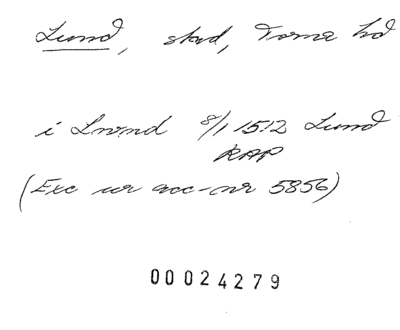 Lund, stad, Torna hd
i Lwnd 8/1 1512 Lund
RAP
(Exc ur acc-nr 5856)
00024279